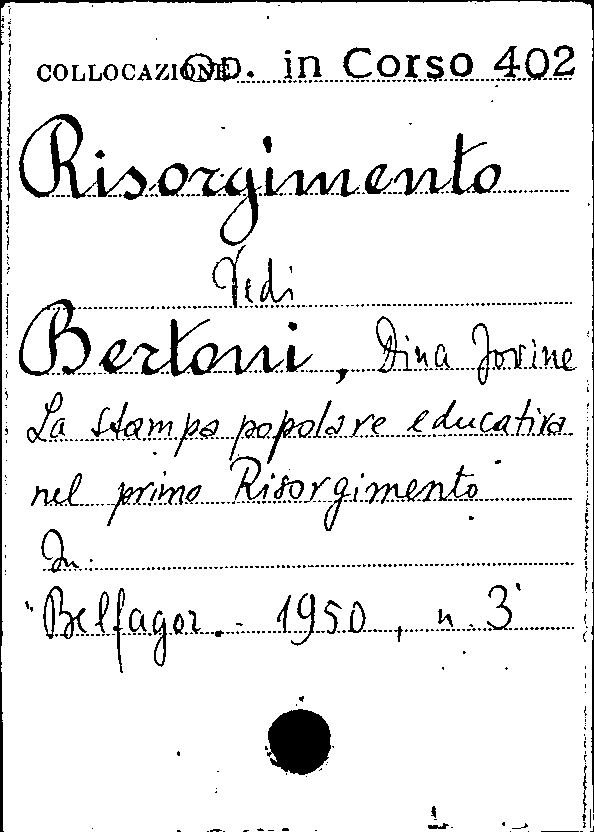 COLLOCAZIONE D. in Corso 402
Risorgimento
Vedi
Bertoni, Dina Jovine
La stampa popolare educativa
nel primo Risorgimento
In:
"Belfagor.- 1950, n. 3